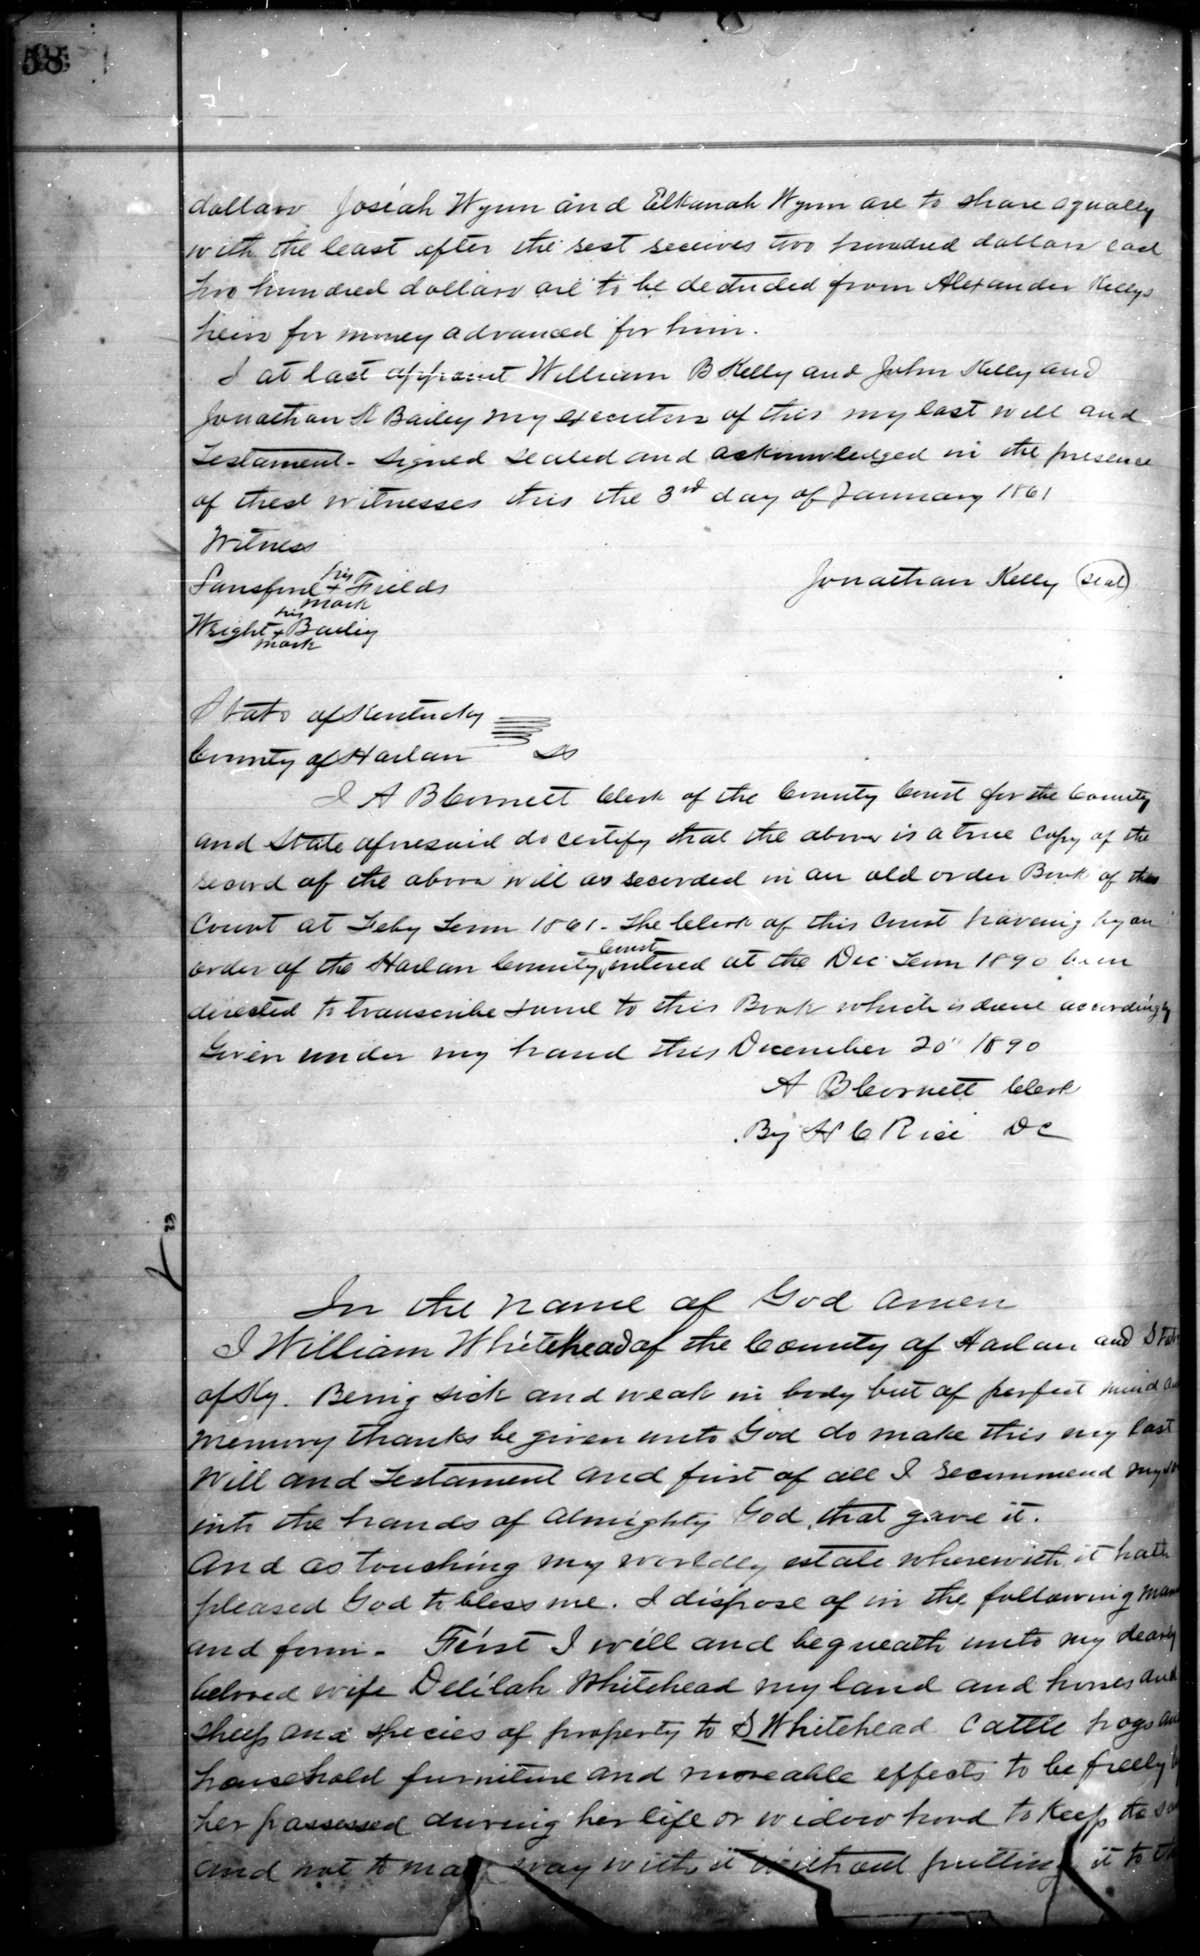 58
dollars Josiah Wynn and Elkanah Wynn are to share equally
with the least after the rest receives two hundred dollars each
two hundred dollars are to be deducted from Alexander Kellys
heirs for money advanced for him.
I at last appoint William B Kelly and John Kelly and
Jonathan K Bailey my executors of this my last will and
Testament - signed sealed and acknowledged in the presence
of these witnesses this the 3rd day of January 1861
Witness
Lansford his + mark Fields
Jonathan Kelly (seal)
Wright his + mark Bailey
State of Kentucky
County of Harlan Ss
I A B Cornett Clerk of the County Court for the County
and State aforesaid do certify that the above is a true copy of the
record of the above will as recorded in an old order Book of this
Court at Feby Term 1861 - The Clerk of this Court having by an
order of the Harlan County Court entered at the Dec Term 1890 been
directed to transcribe same to this Book which is done accordingly
Given under my hand this December 20" 1890
A B Cornett Clerk
By H C Rice DC
In the name of God amen
I William Whitehead of the County of Harlan and State
of Ky. Being sick and weak in body but of perfect mind
memory thanks be given unto God do make this my last
Will and Testament and first of all I recommend
into the hands of Almighty God that gave it.
And as touching my worldly estate wherewith it hath
pleased God to bless me. I dispose of in the following
and form - First I will and bequeath unto my dearly
beloved wife Delilah Whitehead my land and horses and
sheep and species of property to D Whitehead Cattle hogs
household furniture and moveable effects to be freely
her possessed during her life or widowhood to keep the
and not to make way with it without putting it to